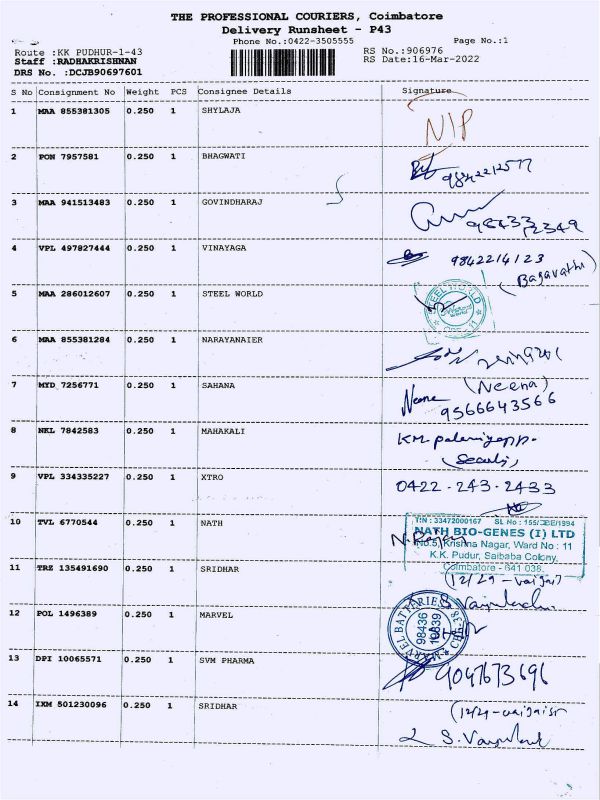 THE PROFESSIONAL COURIERS, Coimbatore
Delivery Runsheet - P43
Phone No.:0422-3505555 Page No.:1
Route :KK PUDHUR-1-43 RS No.:906976
Staff :RADHAKRISHNAN RS Date:16-Mar-2022
DRS No. :DCJB90697601
S No Consignment No Weight PCS Consignee Details Signature
1 MAA 855381305 0.250 1 SHYLAJA
NIP
2 PON 7957581 0.250 1 BHAGWATI
9842212577
3 MAA 941513483 0.250 1 GOVINDHARAJ
4 VPL 497827444 0.250 1 VINAYAGA 9842214123
(Bagavathi)
5 MAA 286012607 0.250 1 STEEL WORLD
STEEL WORLD
6 MAA 855381284 0.250 1 NARAYANAIER
7 MYD 7256771 0.250 1 SAHANA (Neena)
Neena 9566643566
8 NKL 7842583 0.250 1 MAHAKALI
9 VPL 334335227 0.250 1 XTRO 0422-243-2433
10 TVL 6770544 0.250 1 NATH
TIN : 33472000167 SL No : 155/CBE/1994
NATH BIO-GENES (I) LTD
No.5, Krishna Nagar, Ward No : 11
K.K. Pudur, Saibaba Colony,
Coimbatore - 641 038.
11 TRZ 135491690 0.250 1 SRIDHAR
12 POL 1496389 0.250 1 MARVEL
MARVEL BATTERIES
98436
10839
13 DPI 10065571 0.250 1 SVM PHARMA
9047673696
14 IXM 501230096 0.250 1 SRIDHAR